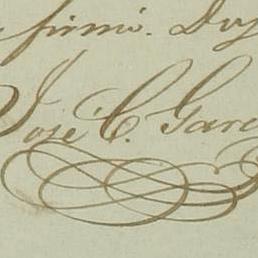 firmó. Doy
José C. Garc